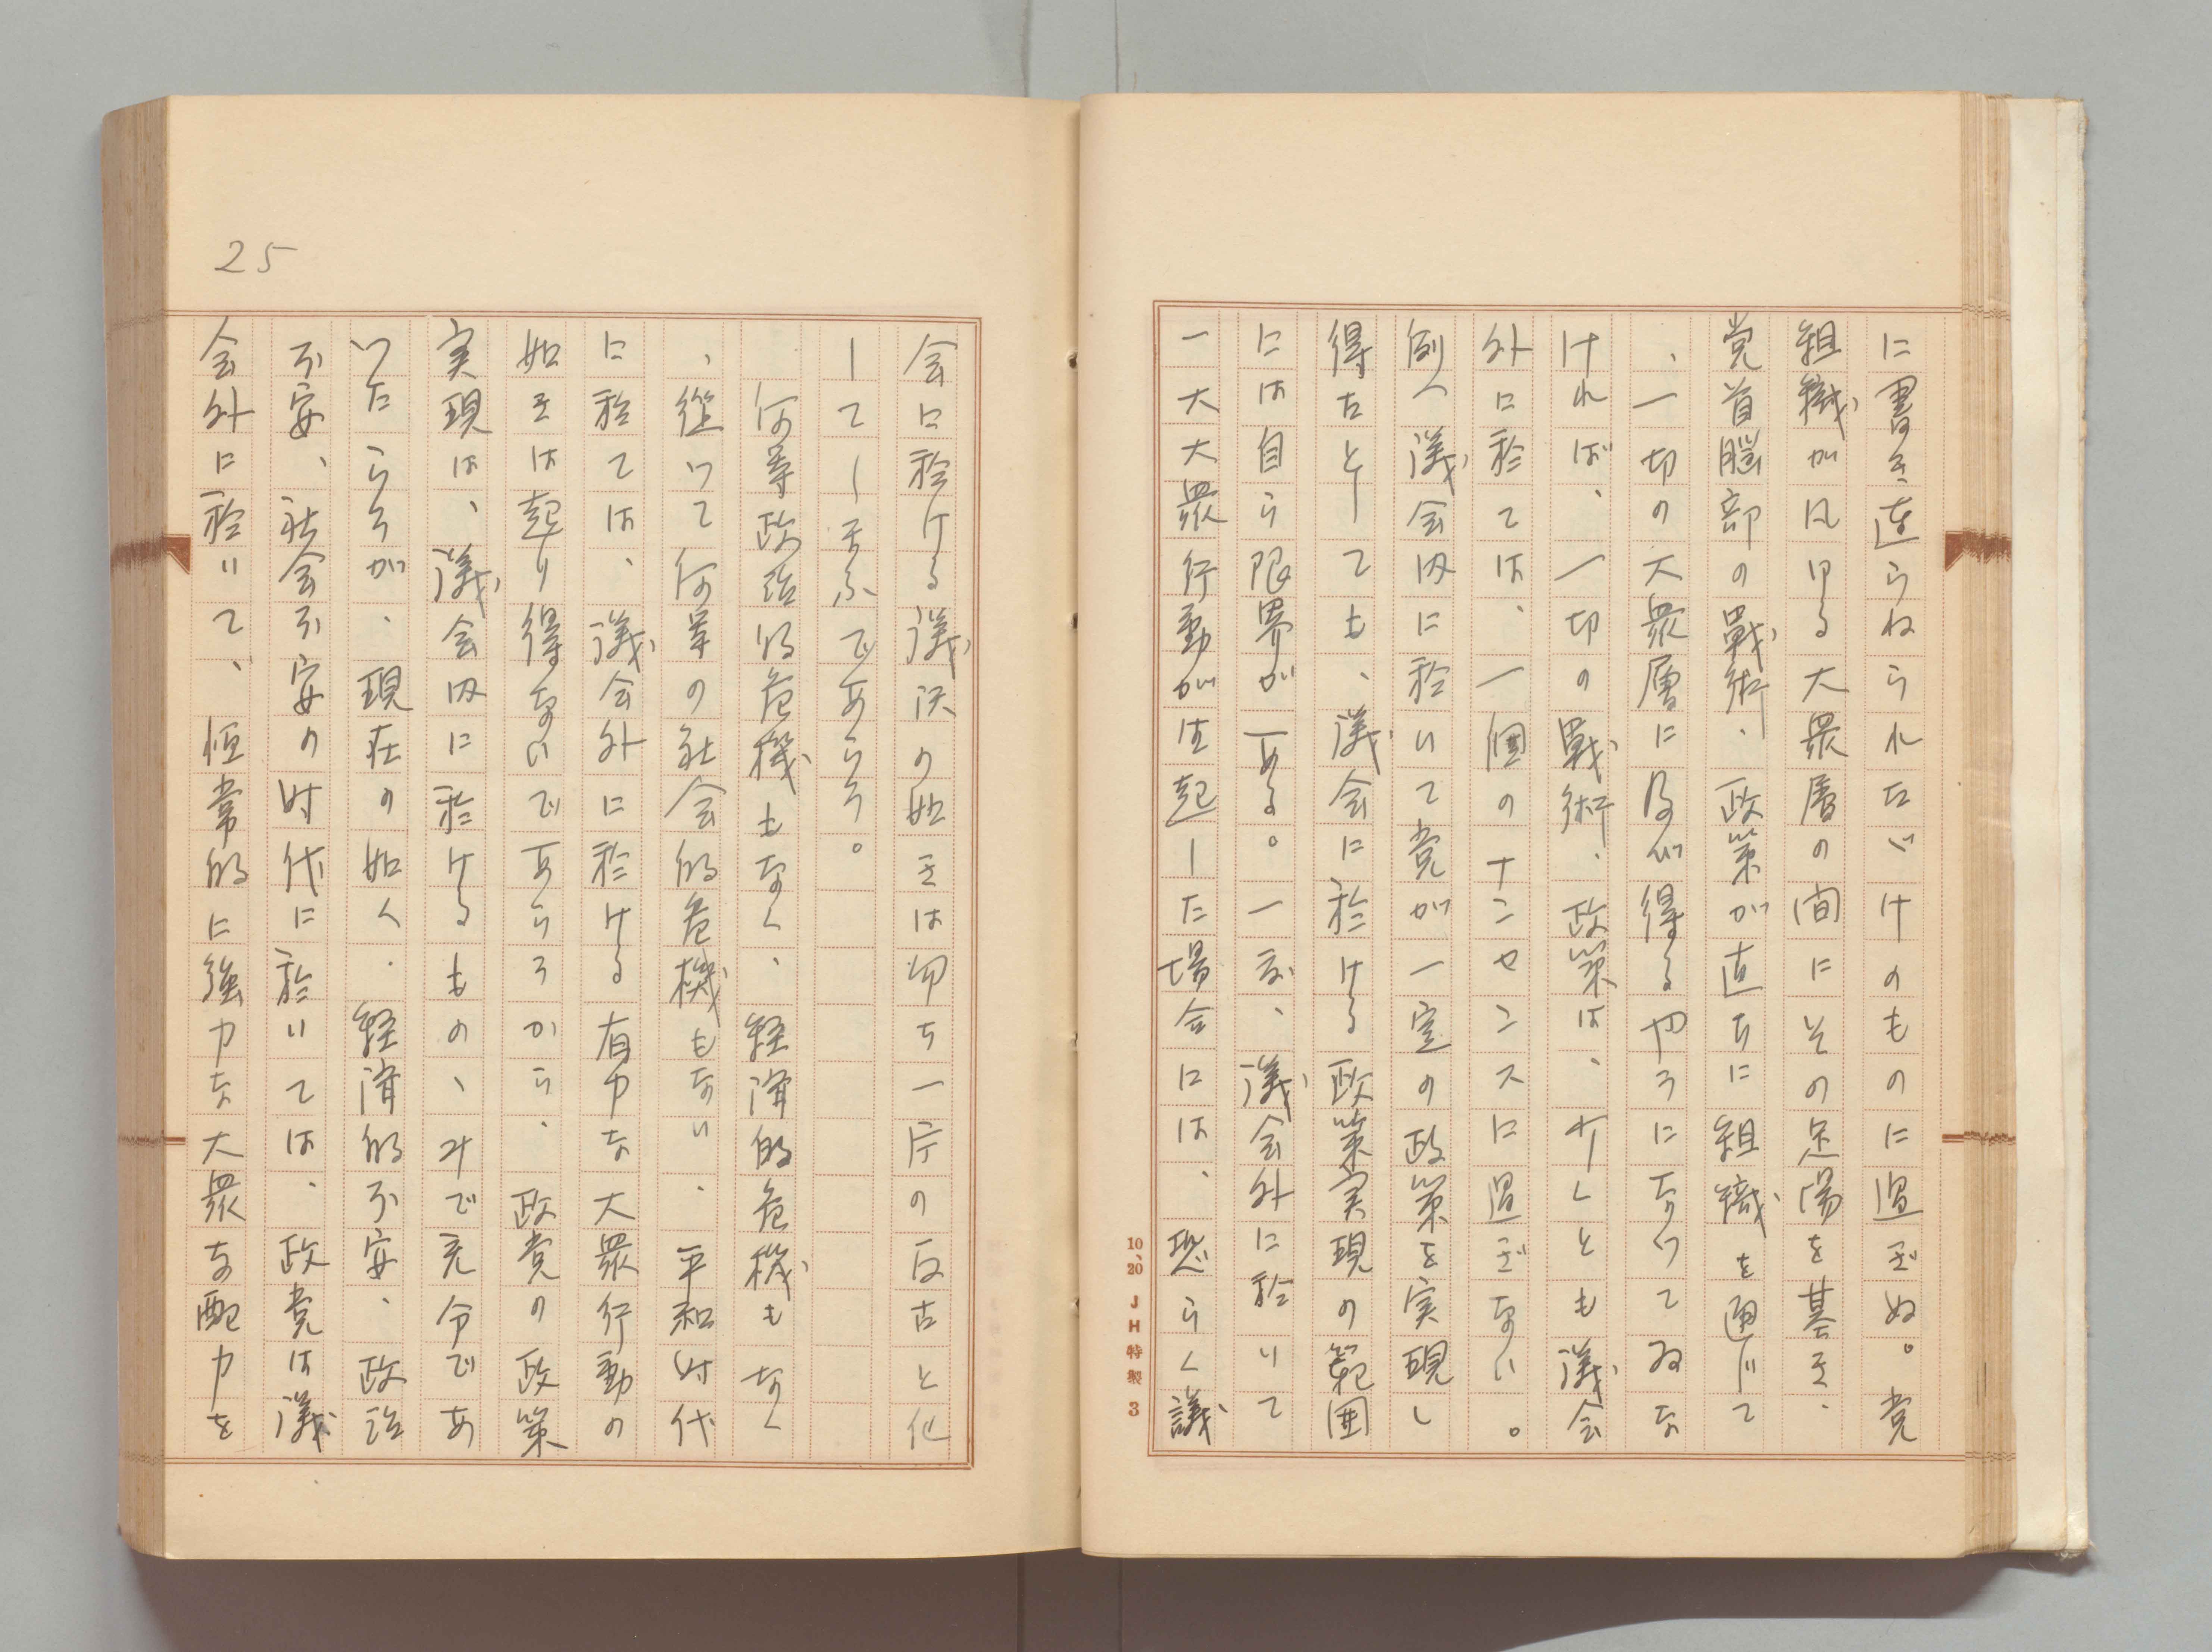 に書き直らねられたゞけのものに過ぎぬ。党
組織が凡ゆる大衆層の間にその足場を基き、
党首脳部の戦術、政策が直ちに組織を通じて
、一切の大衆層に及び得るやうになつてゐな
ければ、一切の戦術、政策は、少くとも議会
外に於ては、一個のナンセンスに過ぎない。
例へ議会内に於いて党が一定の政策を実現し
得たとしても、議会に於ける政策実現の範囲
には自ら限界がある。一度、議会外に於いて
一大大衆行動が生起した場合には、恐らく議
10、20 JH特製 3
会に於ける議決の如きは忽ち一片の反古と化
してしまふであらう。
何等政治的危機もなく、経済的危機もなく
、従つて何等の社会的危機もない、平和時代
に於ては、議会外に於ける有力な大衆行動の
如きは起り得ないであらうから、政党の政策
実現は、議会内に於けるもの、みで充分であ
つたらうが、現在の如く、経済的不安、政治
不安、社会不安の時代に於いては、政党は議
会外に於いて、恒常的に強力な大衆な配力を
25